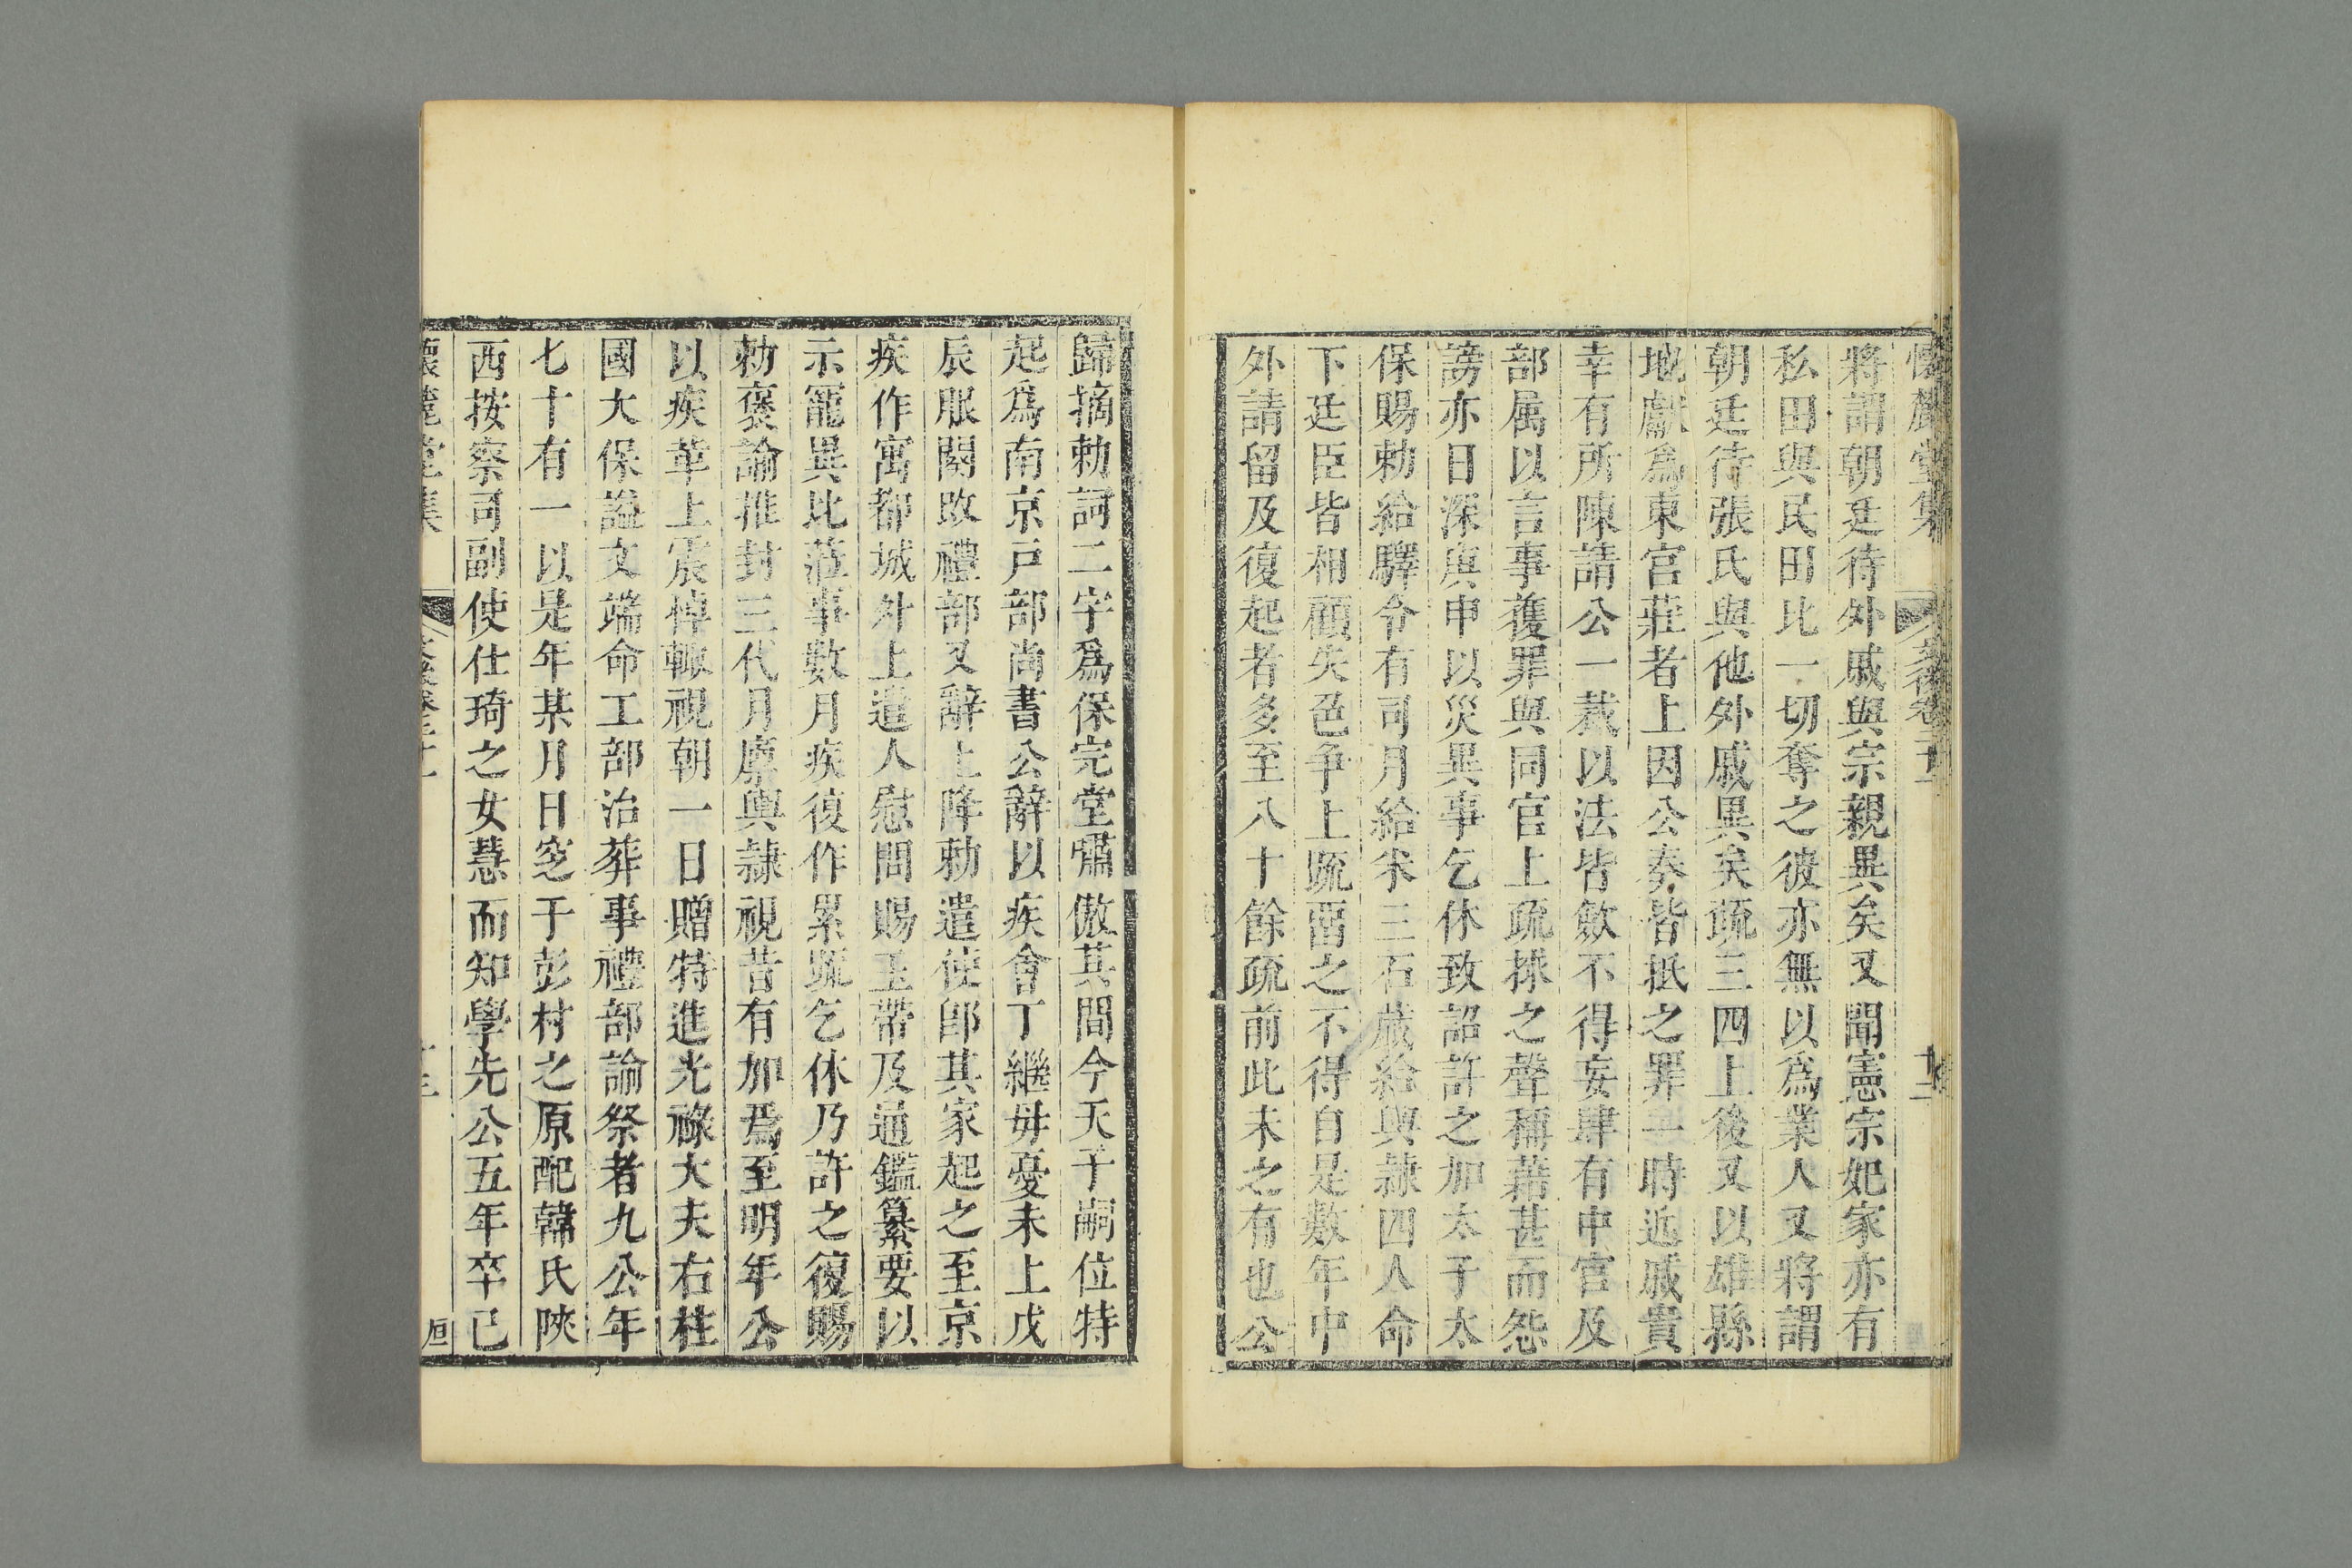 懷麓堂集 文後卷三十 十二
將謂朝廷待外戚與宗親異矣又聞憲宗妃家亦有
私田與民田比一切奪之彼亦無以爲業人又將謂
朝廷待張氏與他外戚異矣疏三四上後又以雄縣
地獻爲東宮莊者上因公奏皆抵之罪一時近戚貴
幸有所陳請公一裁以法皆斂不得妄肆有中官及
部属以言事獲罪與同官上疏捄之聲稱藉甚而怨
謗亦日深與申以災異事乞休致詔許之加太子太
保賜勅給驛令有司月給米三石歲給輿隸四人命
下廷臣皆相顧失色争上疏畱之不得自是數年中
外請留及復起者多至八十餘疏前此未之有也公
歸摘勅詞二字爲保完堂嘯傲其間今天子嗣位特
起爲南京戸部尚書公辭以疾會丁繼毋憂未上戊
辰服闋改禮部又辭上降勅遣使卽其家起之至京
疾作寓都城外上遣人慰問賜玉帶及通鑑纂要以
示寵異比蒞事數月疾復作累疏乞休乃許之復賜
勅褒諭推封三代月廩輿隸視昔有加焉至明年公
以疾革上震悼輟視朝一日贈特進光祿大夫右柱
國太保謚文端命工部治葬事禮部諭祭者九公年
七十有一以是年某月日窆于彭村之原配韓氏陝
西按察司副使仕琦之女慧而知學先公五年卒已
懷麓堂集 文後卷三十 十三